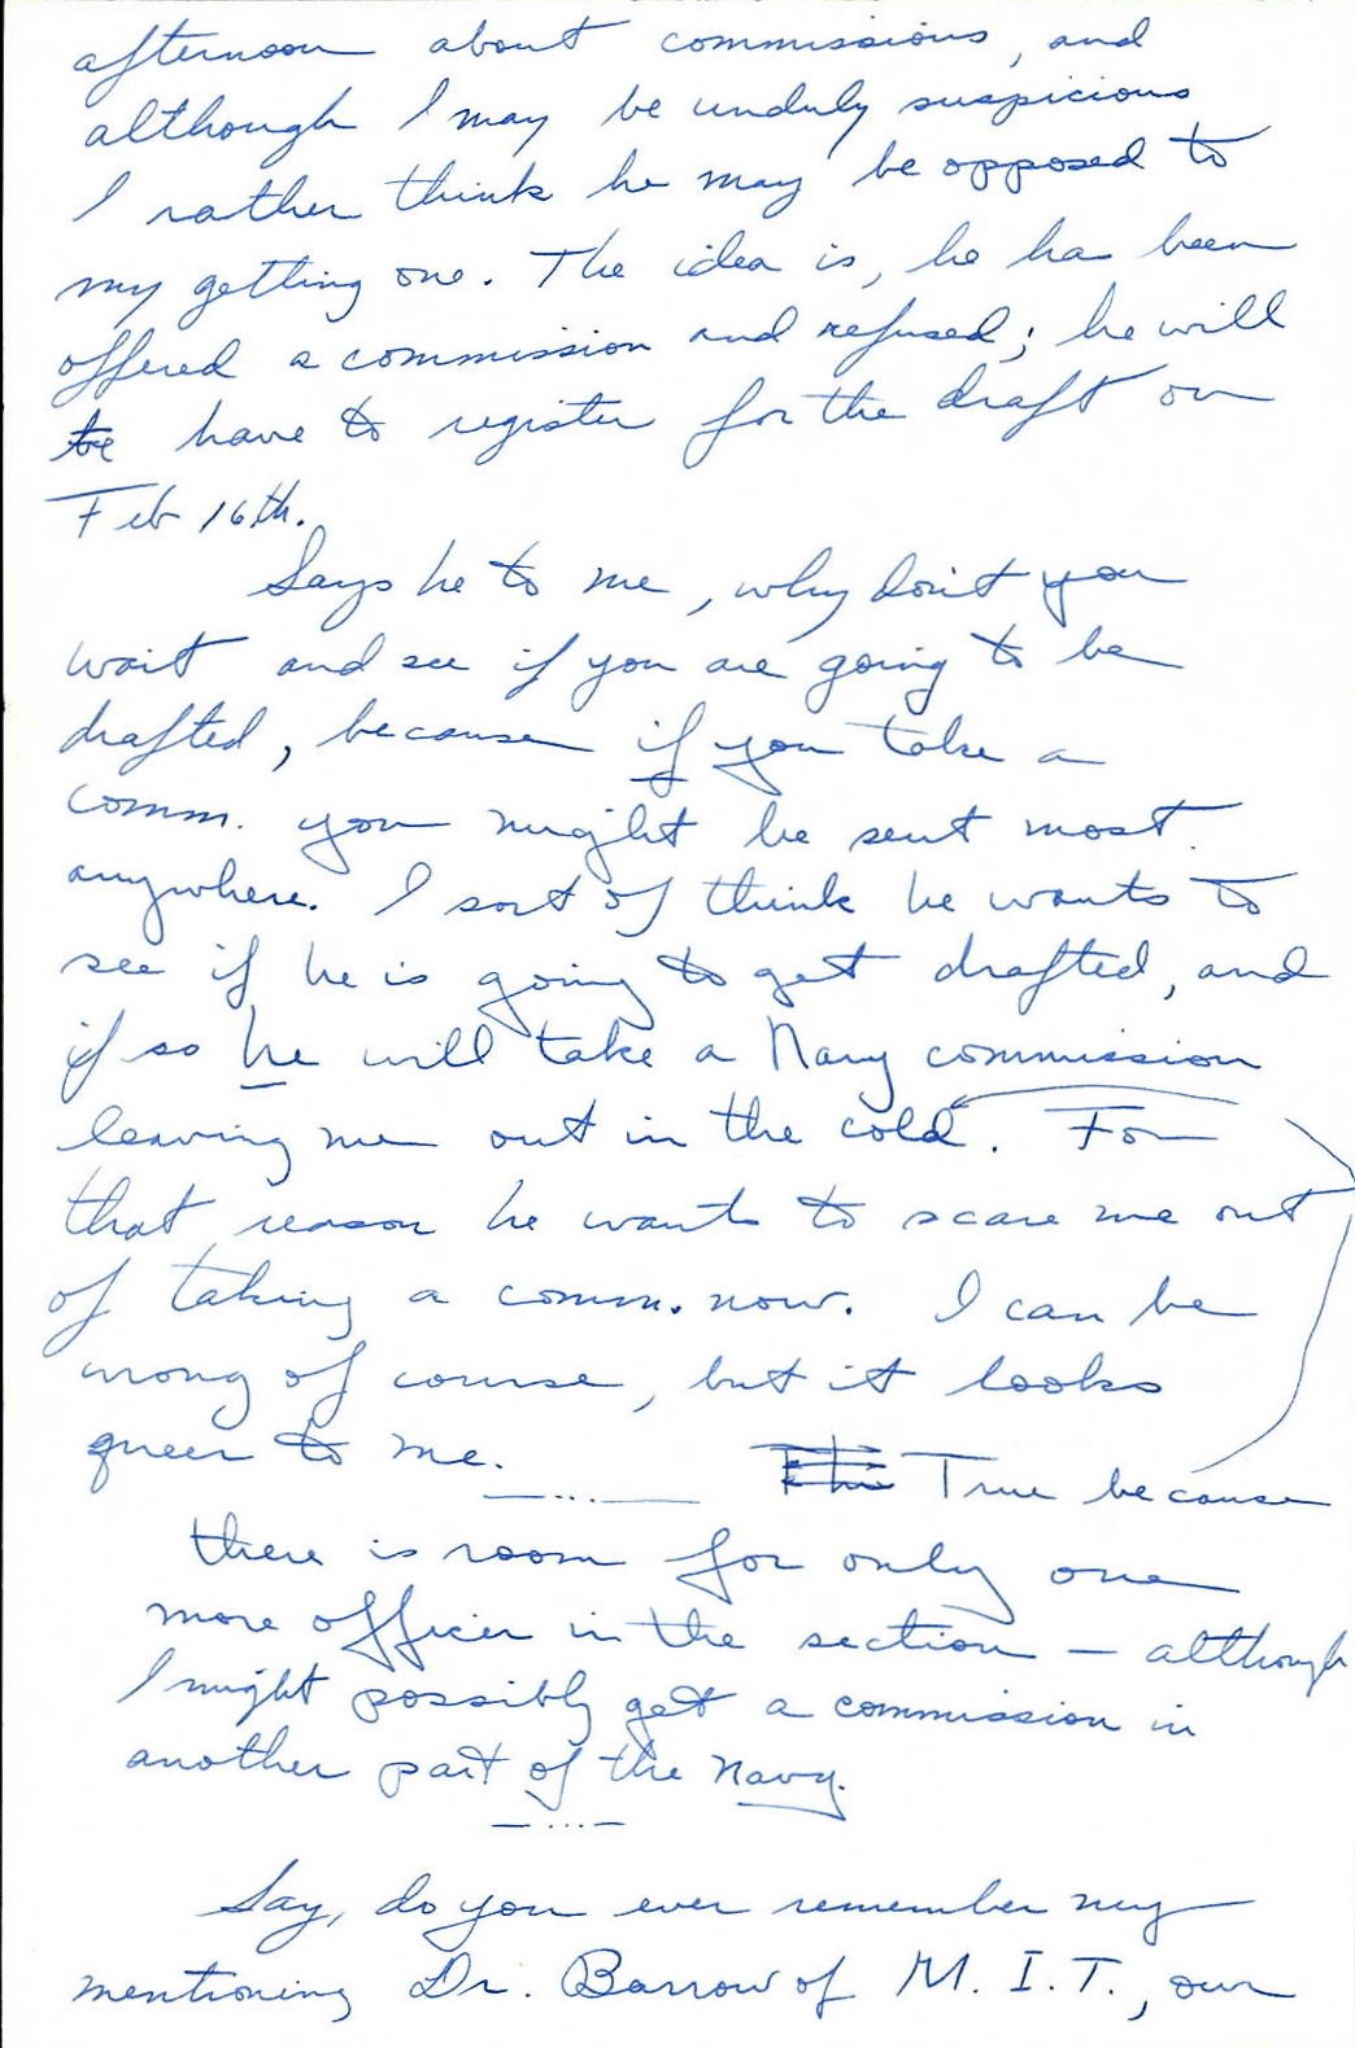 afternoon about commissions, and
although I may be unduly suspicious
I rather think he may be opposed to
my getting one. The idea is, he has been
offered a commission and refused; he will
be have to register for the draft on
Feb 16th.
Says he to me, why don't you
wait and see if you are going to be
drafted, because if you take a
comm. you might be sent most
anywhere. I sort of think he wants to
see if he is going to get drafted, and
if so he will take a Navy commission
leaving me out in the cold. For
that reason he wants to scare me out
of taking a comm. now. I can be
wrong of course, but it looks
queer to me.
True because
there is room for only one
more officer in the section – although
I might possibly get a commission in
another part of the navy.
Say, do you ever remember my
mentioning Dr. Barrow of M. I. T., our